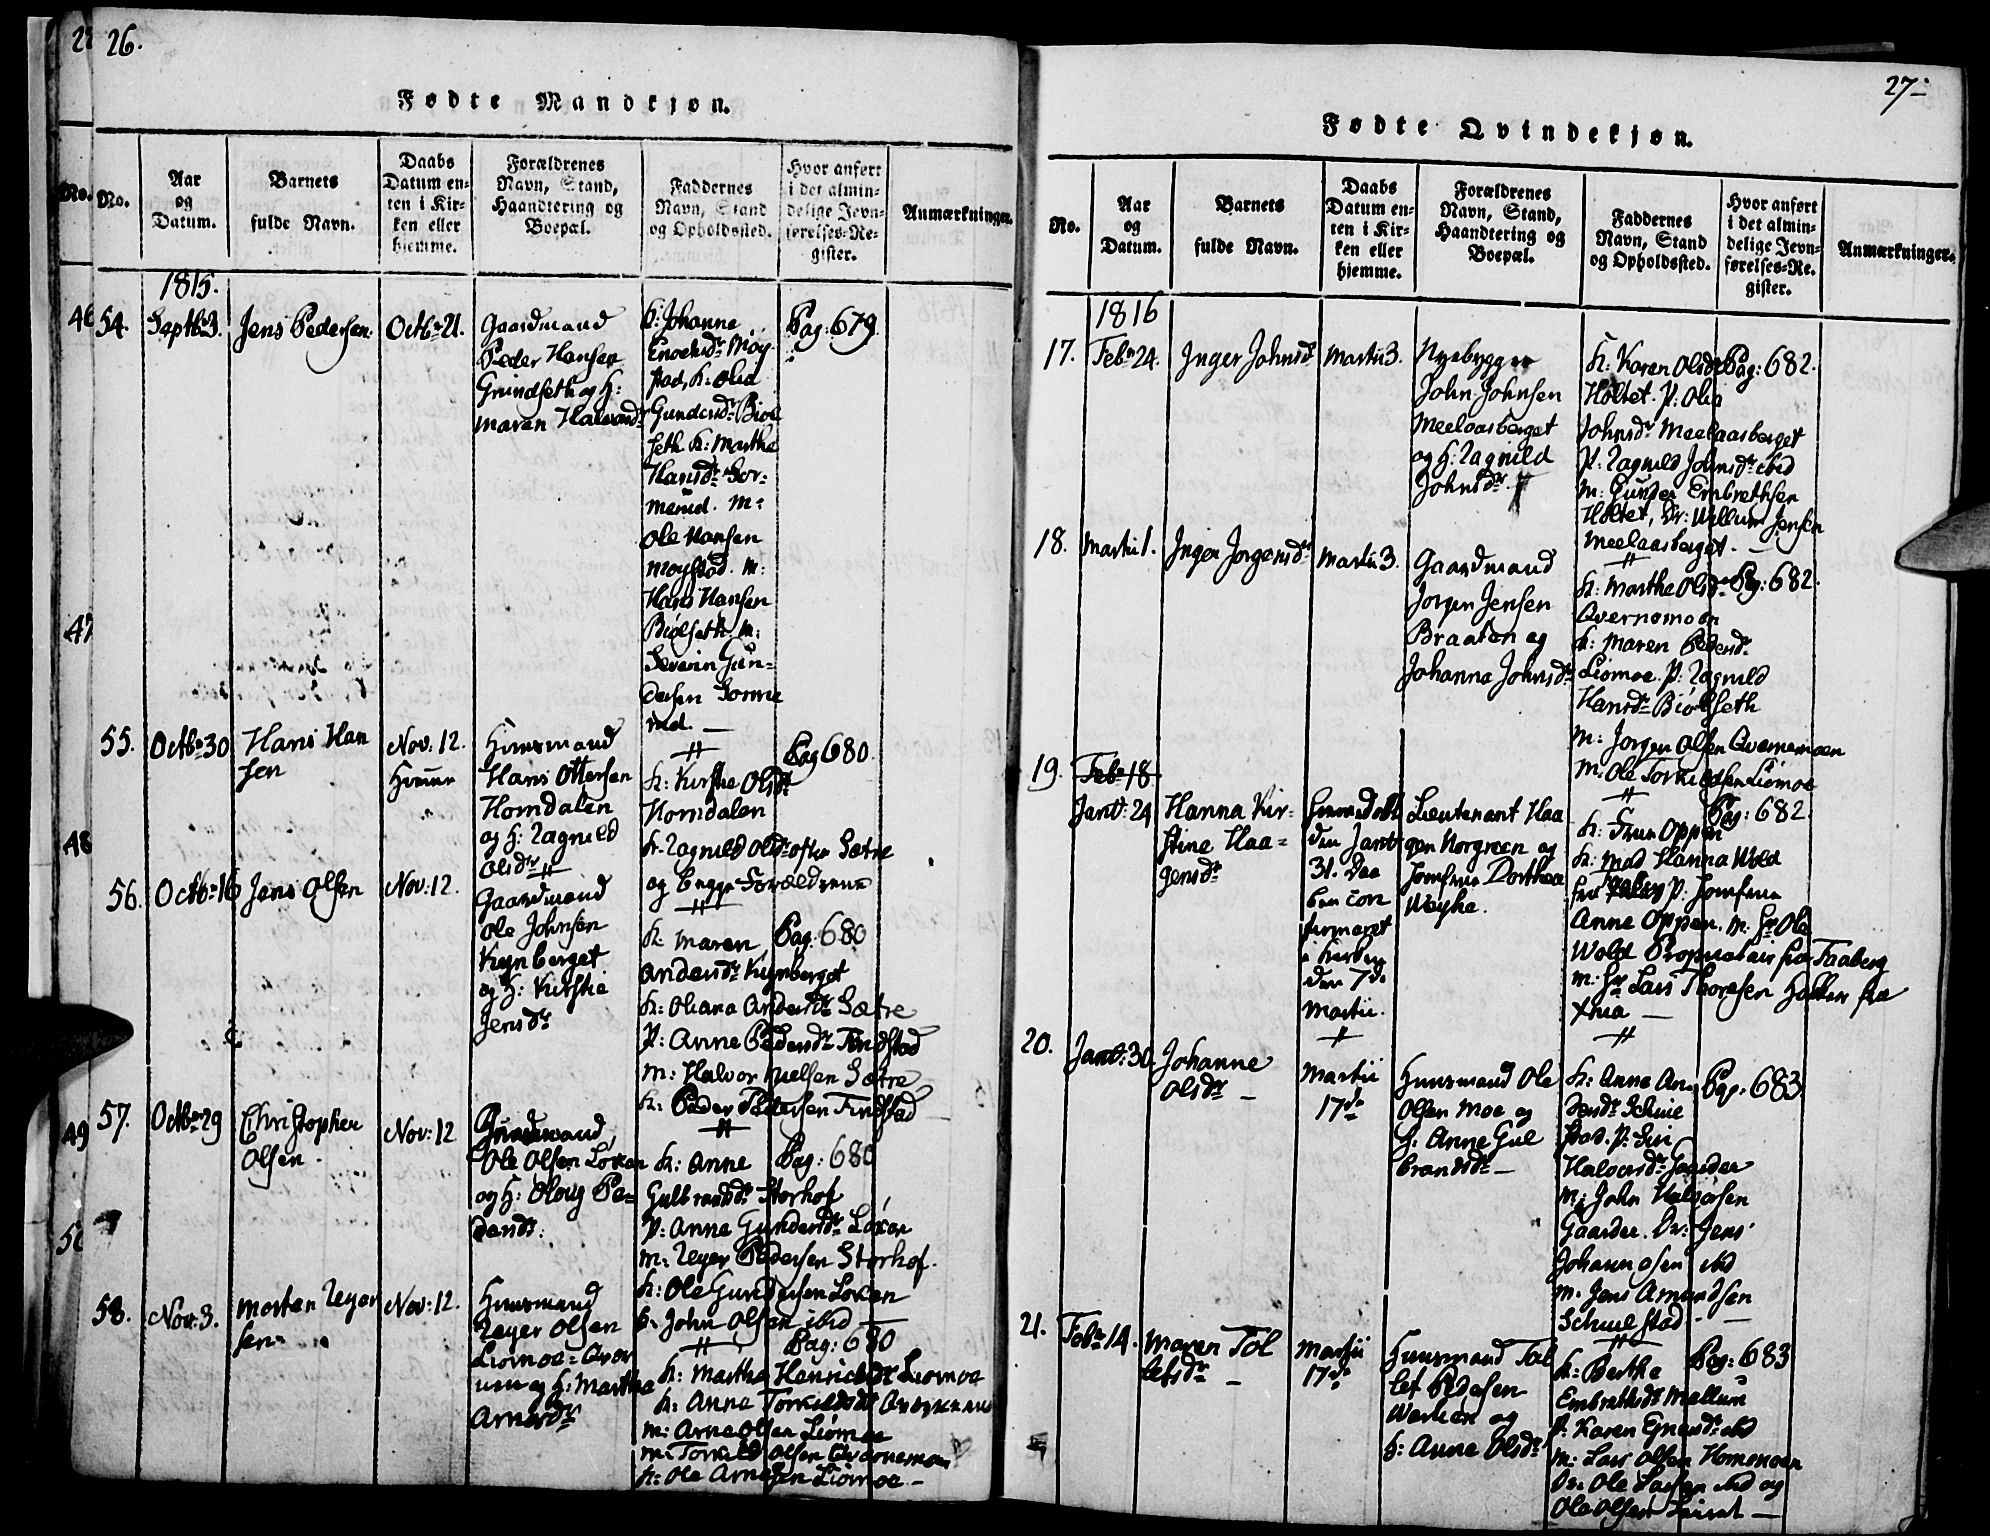 26.
Fødte Mandkjøn.
No.
Aar
og
Datum.
Barnets
fulde Navn.
Daabs
Datum en-
ten i Kir-
ken eller
hjemme.
Forældrenes
Navn, Stand,
Haandtering og
Boepæl.
Faddernes
Navn, Stand
og Opholdssted.
Hvor anført
i det almin-
delige Jevn-
førelses-Re-
gister.
Anmærkninger.
1815.
54.
Septbr 3.
Jens Pedersen.
Octbr 21.
Gaardmand
Peder Hansen
Grindseth og H:
Maren Halvorsdr
K: Johanne
Enochsdr Møy-
stad, K: Olea
Gundersdr Biøl
seth K: Marthe
Hansdr Gor-
merud. M:
Ole Hansen
Moystad. M:
Hans Hansen
Biølseth. M:
Severin Gun-
dersen Gorme
rud. —
Pag: 679.
55.
Octbr 30
Hans Han
sen
Nov: 12.
Huusmand
Hans Ottersen
Horndalen
og H: Ragnild
Olsdr
K: Kirstie Olsdr
Horndalen
K. Ragnild Olsdr Sætre
og begge Forældrene
Pag 680.
56.
Octbr 16
Jens Olsen
Nov: 12.
Gaardmand
Ole Johnsen
Kynberget
og H: Kirstie
Jensdr
K. Maren
Andersdr Kynberget
K: Oleana Andersdr Sætre
P: Anne Pedersdr Findstad
M: Halvor Nielsen Sætre
K: Peder Pedersen Findstad
Pag: 680
57.
Octbr 29
Christopher
Olsen.
Nov: 12
Gaardmand
Ole Olsen Løken
og H: Oloug Pe-
dersdr.
K: Anne
Gulbrandsdr Storhof
P: Anne Gundersdr Løken
M: Reyer Pedersen Storhof.
K: Ole Gundersen Løken
John Olsen ibid
Pag: 680
58.
Nov: 3.
Morten Reyer
sen
Nov: 12.
Huusmand
Reyer Olsen
Liømoe
og H: Marthe
Arnesdr
K: Marthe Henrichsdr Liømoe
K: Anne Torkildsdr
M: Arne Olsen Liømoe
M: Torkild Olsen Qvernemoen
K: Ole Arnesen Liømoe —
Pag: 680
27
Fødte Qvindekjøn.
No.
Aar
og
Datum.
Barnets
fulde Navn.
Daabs
Datum en-
ten i Kir-
ken eller
hjemme.
Forældrenes
Navn, Stand,
Haandtering og
Boepæl.
Faddernes
Navn, Stand
og Opholdssted.
Hvor anført
i det almin-
delige Jevn-
førelses-Re-
gister.
Anmærkninger.
1816
17.
Febr 24.
Inger Johnsdr
Martii 3.
Nyebygger
John Johnsen
Meelaasberget
og H: Ragnild
Johnsdr
K: Karen Olsdr
Holtet. P: Olea
Johnsdr Meelaasberget
P. Ragnild Johnsdr ibid
M: Gunder Embrethsen
Holtet, Dr: Willum Jensen
Meelaasberget.
Pag: 682.
18.
Martii 1.
Inger Jorgensdr
Martii 3.
Gaardmand
Jorgen Jensen
Braaten og
Johanna Johnsdr
K: Marthe Olsdr
Qvernemoen
K: Maren Pedersdr
Liømoe. P: Ragnild
Hansdr Biølseth
M: Jorgen Olsen Qvernemoen
M: Ole Torkildsen Liømoe
Pag: 682.
19.
Febr 18
Janv: 24
Hanna Kir-
stine Haa-
gensdr
Hiemmedøbt
den Janv
31. Daa
ben con
firmeret
i Kirken
den 7de
Martii.
Lieutenant Haa
gen Norgreen og
Jomfrue Dorthea
Weyhe.
K: Frue Oppen
K: Mad Hanna Wold
P. Jomfrue
Anne Oppen. M: Hr Ole
Wold Proprietair fra Faaberg
M: Hr Lars Thoresen fra
Xnia —
Pag: 682.
20.
Janv: 30
Johanne
Olsdr —
Martii
17de
Huusmand Ole
Olsen Moe og
H: Anne Gul
brandsdr —
K: Anne An-
dersdr Schiue
stad. P: Siri
Halvorsdr Gaarder
M: John Halvorsen
Gaarder. Dr: Jens
Johannesen ibid
M: Jens Amundsen
Schiuestad. —
Pag: 683
21.
Febr 14.
Maren Tol
lefsdr —
Martii
17de
Huusmand Tol
lef Pedersen
og
H: Anne Olsdr
K: Berthe
Embrethsdr Mellum
P. Karen Ejnersdr ibid
M: Lars Olsen Hommoen
Dr: Ole Larsen ibid og
Ole Olsen —
Pag: 683